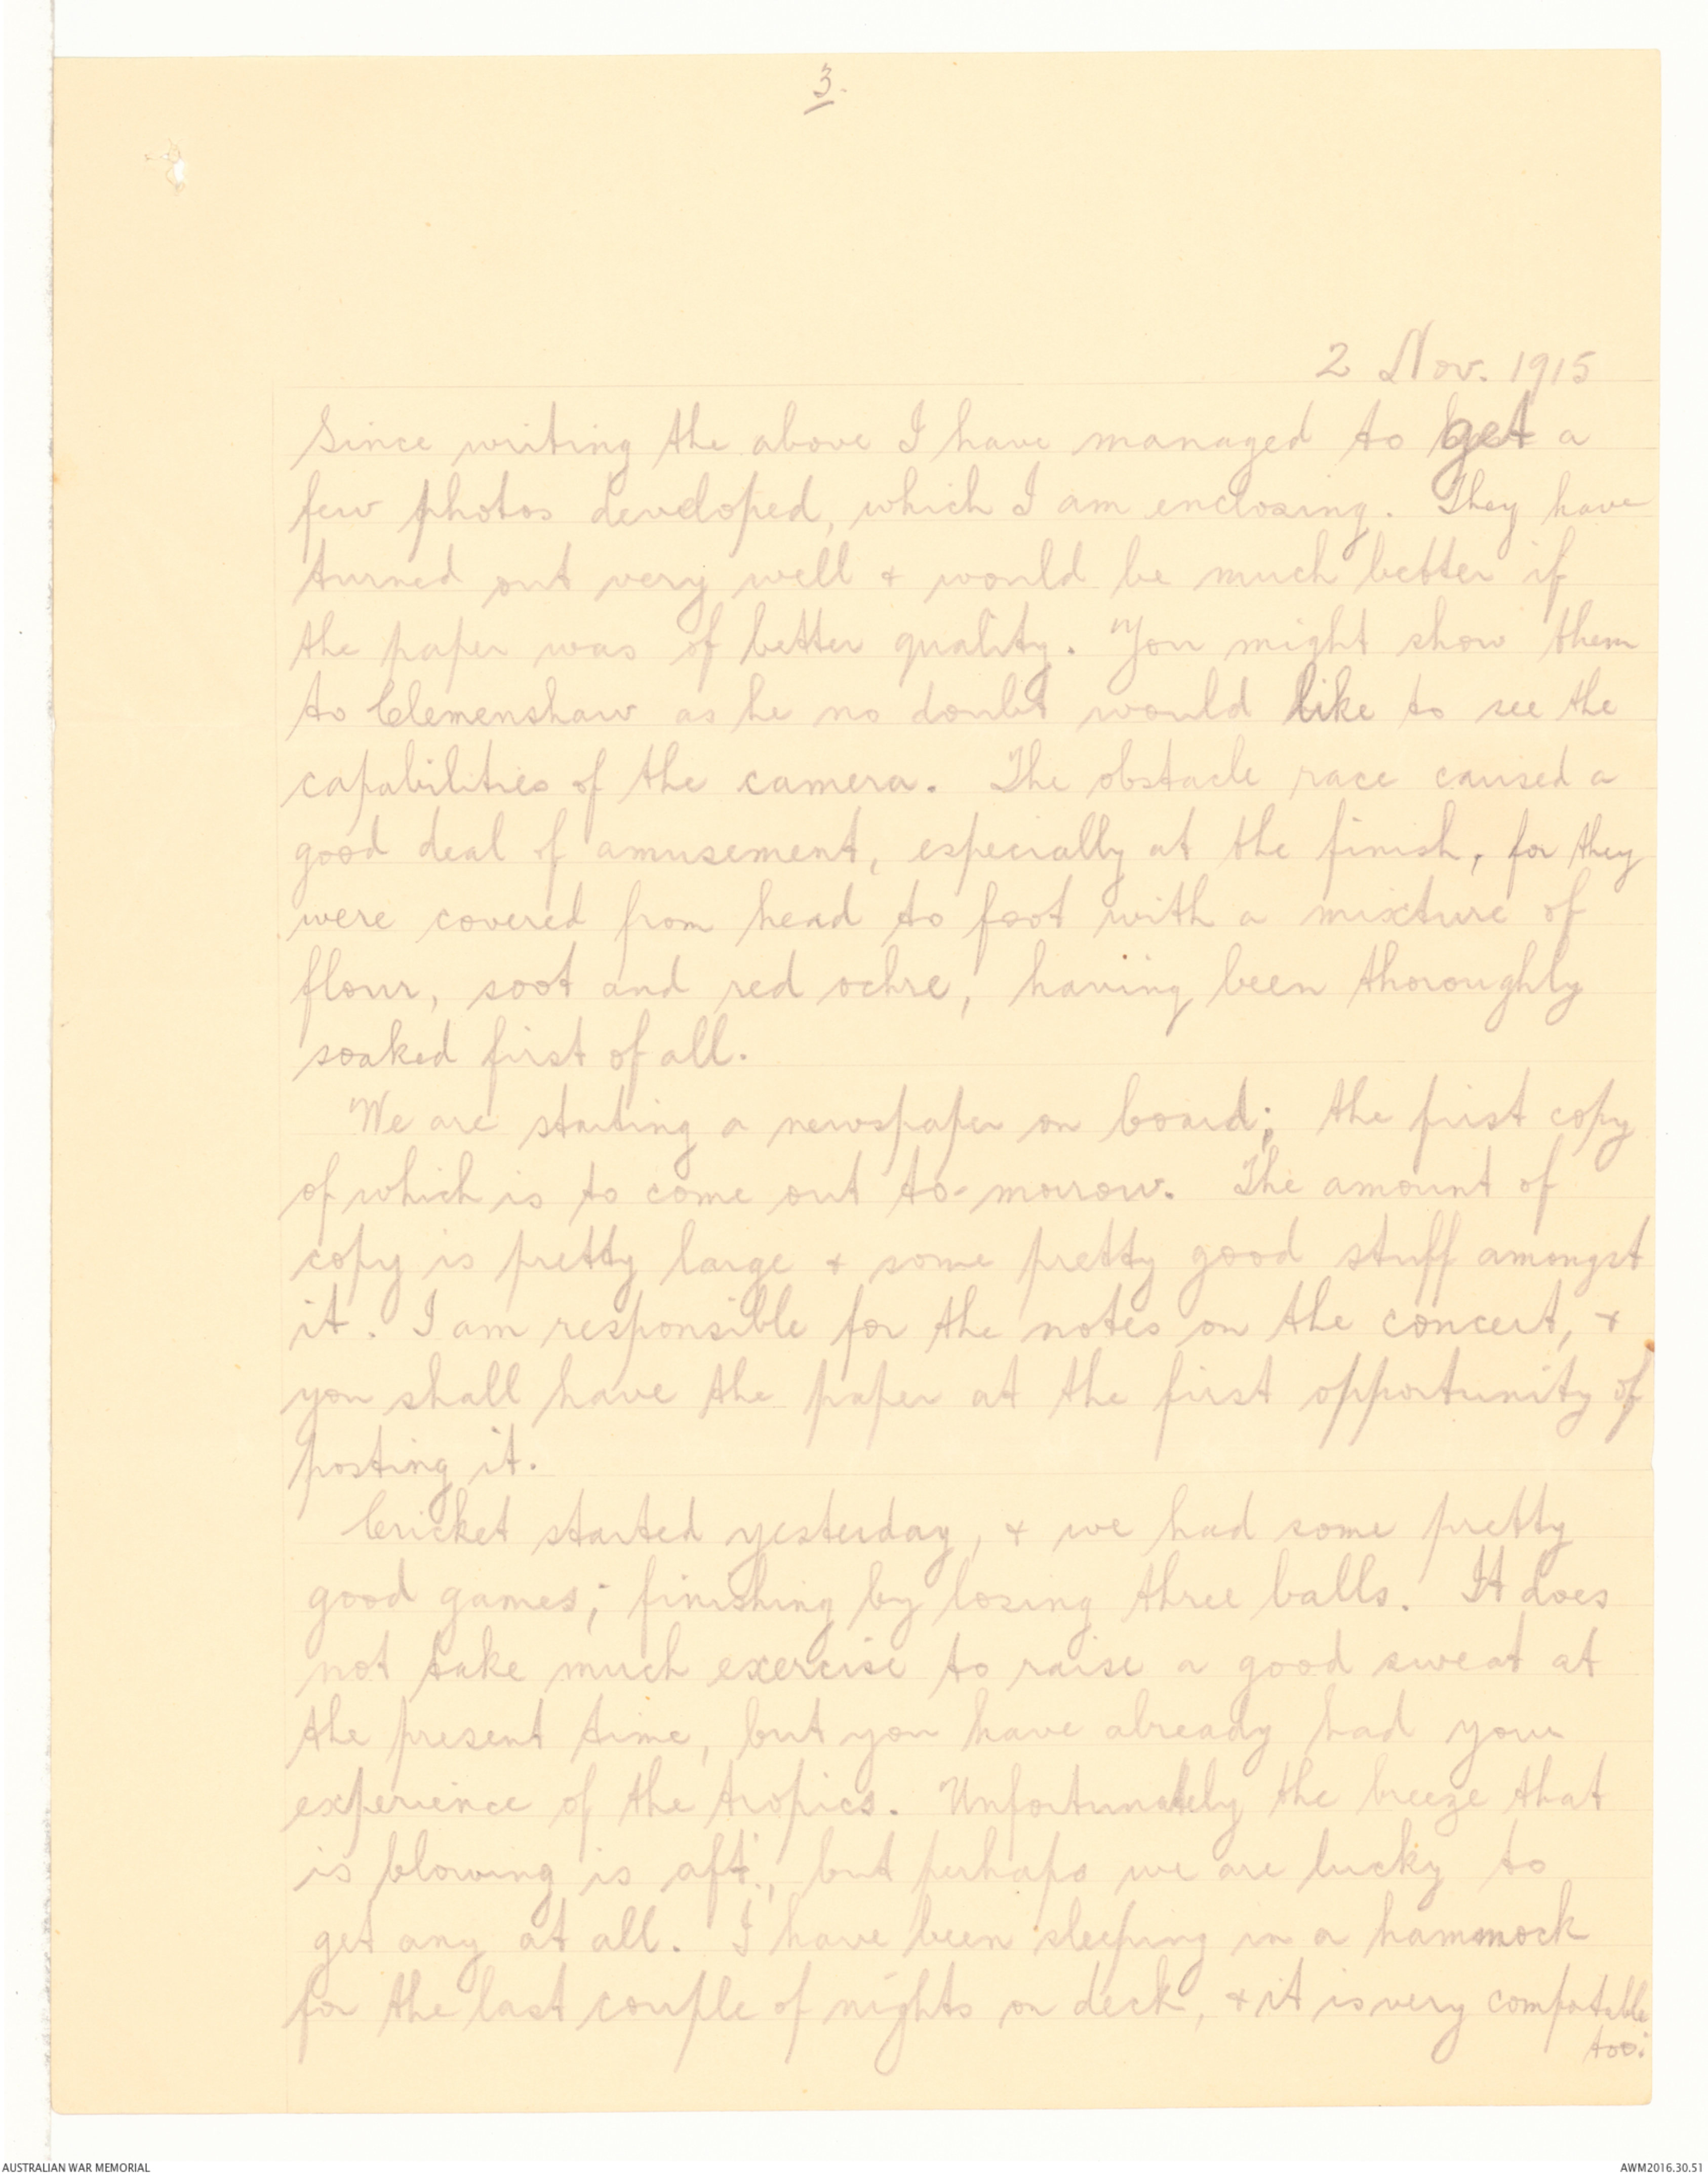 3.
2 Nov. 1915
Since writing the above I have managed to get a
few photos developed, which I am enclosing. They have
turned out very well & would be much better if
the paper was of better quality. You might show them
to Clemenshaw as he no doubt would like to see the
capabilities of the camera. The obstacle race caused a
good deal of amusement, especially at the finish, for they
were covered from head to foot with a mixture of
flour, soot and red ochre, having been thoroughly
soaked first of all.
We are starting a newspaper on board; the first copy
of which is to come out to-morrow. The amount of
copy is pretty large & some pretty good stuff amongst
it. I am responsible for the notes on the concert, &
you shall have the paper at the first opportunity of
posting it.
Cricket started yesterday, & we had some pretty
good games; finishing by losing three balls. It does
not take much exercise to raise a good sweat at
the present time, but you have already had your
experience of the tropics. Unfortunately the breeze that
is blowing is aft., but perhaps we are lucky to
get any at all. I have been sleeping in a hammock
for the last couple of nights on deck, & it is very comfortable
too.
AUSTRALIAN WAR MEMORIAL
AWM2016.30.51